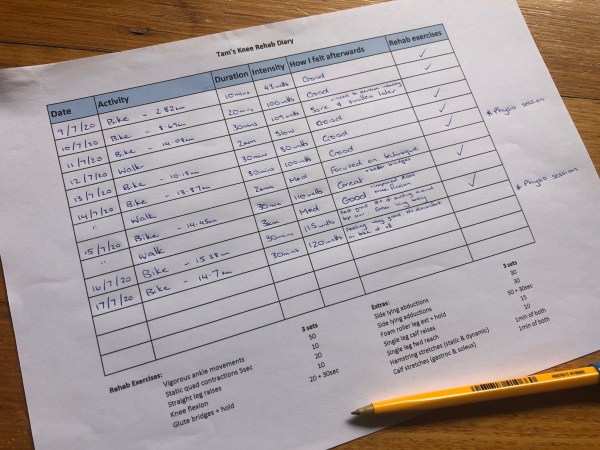 Tam's Knee Rehab Diary
Date Activity Duration Intensity How I felt afterwards Rehab exercises
9/7/20 Bike - 2.82km 10mins 43watts Good ✓
10/7/20 Bike - 8.69km 20mins 100watts Good ✓
11/7/20 Bike - 14.08km 30mins 109watts Sore & swollen later ✓
12/7/20 Walk 2km Slow Good ✓
13/7/20 Bike - 10.18km 30mins 80watts Good ✓ * Physio session
14/7/20 Bike - 13.87km 30mins 100watts Focused on technique ✓
" Walk 2km Med Great
15/7/20 Bike - 14.45km 30mins 110watts Good ✓
" Walk 3km Med
16/7/20 Bike - 15.38km 30mins 115watts * Physio session
17/7/20 Bike - 14.7km 30mins 120watts
Rehab Exercises: 3 sets
Vigorous ankle movements 50
Static quad contractions 5sec 10
Straight leg raises 20
Knee flexion 10
Glute bridges + hold 20 + 30sec
Extras: 3 sets
Side lying abductions 30
Side lying adductions 30
Foam roller leg ext + hold 50 + 30sec
Single leg calf raises 15
Single leg fwd reach 10
Hamstring stretches (static & dynamic) 1min of both
Calf stretches (gastroc & soleus) 1min of both